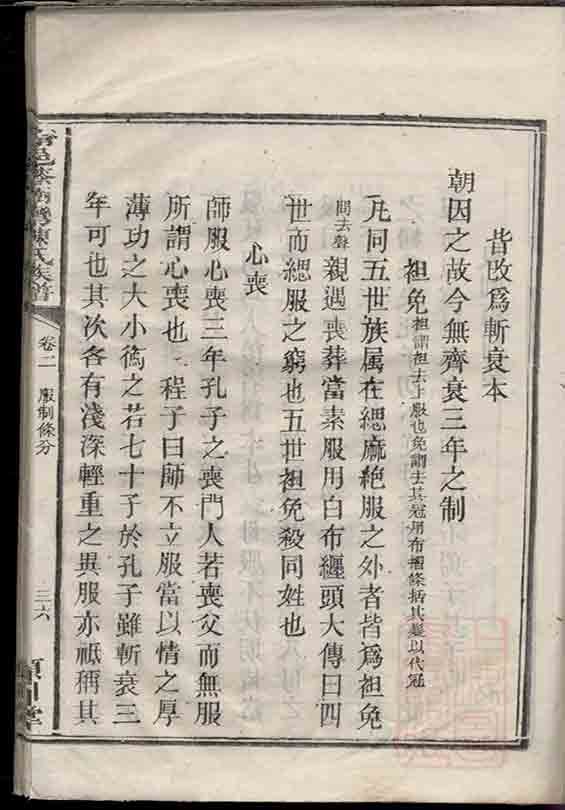 皆改爲斬衰本
朝因之故今無齊衰三年之制
袒免袒謂袒去上服也免謂去其冠用布摺條括其髮以代冠
凡同五世族属在緦麻絶服之外者皆爲袒免
問去聲親遇喪葬當素服用白布纏頭大傳曰四
世而緦服之窮也五世袒免殺同姓也
心喪
師服心喪三年孔子之喪門人若喪父而無服
所謂心喪也 程子曰師不立服當以情之厚
薄功之大小爲之若七十子於孔子雖斬衰三
年可也其次各有淺深輕重之異服亦祗稱其
陳氏族譜
卷二 服制條分
三六
潁川堂